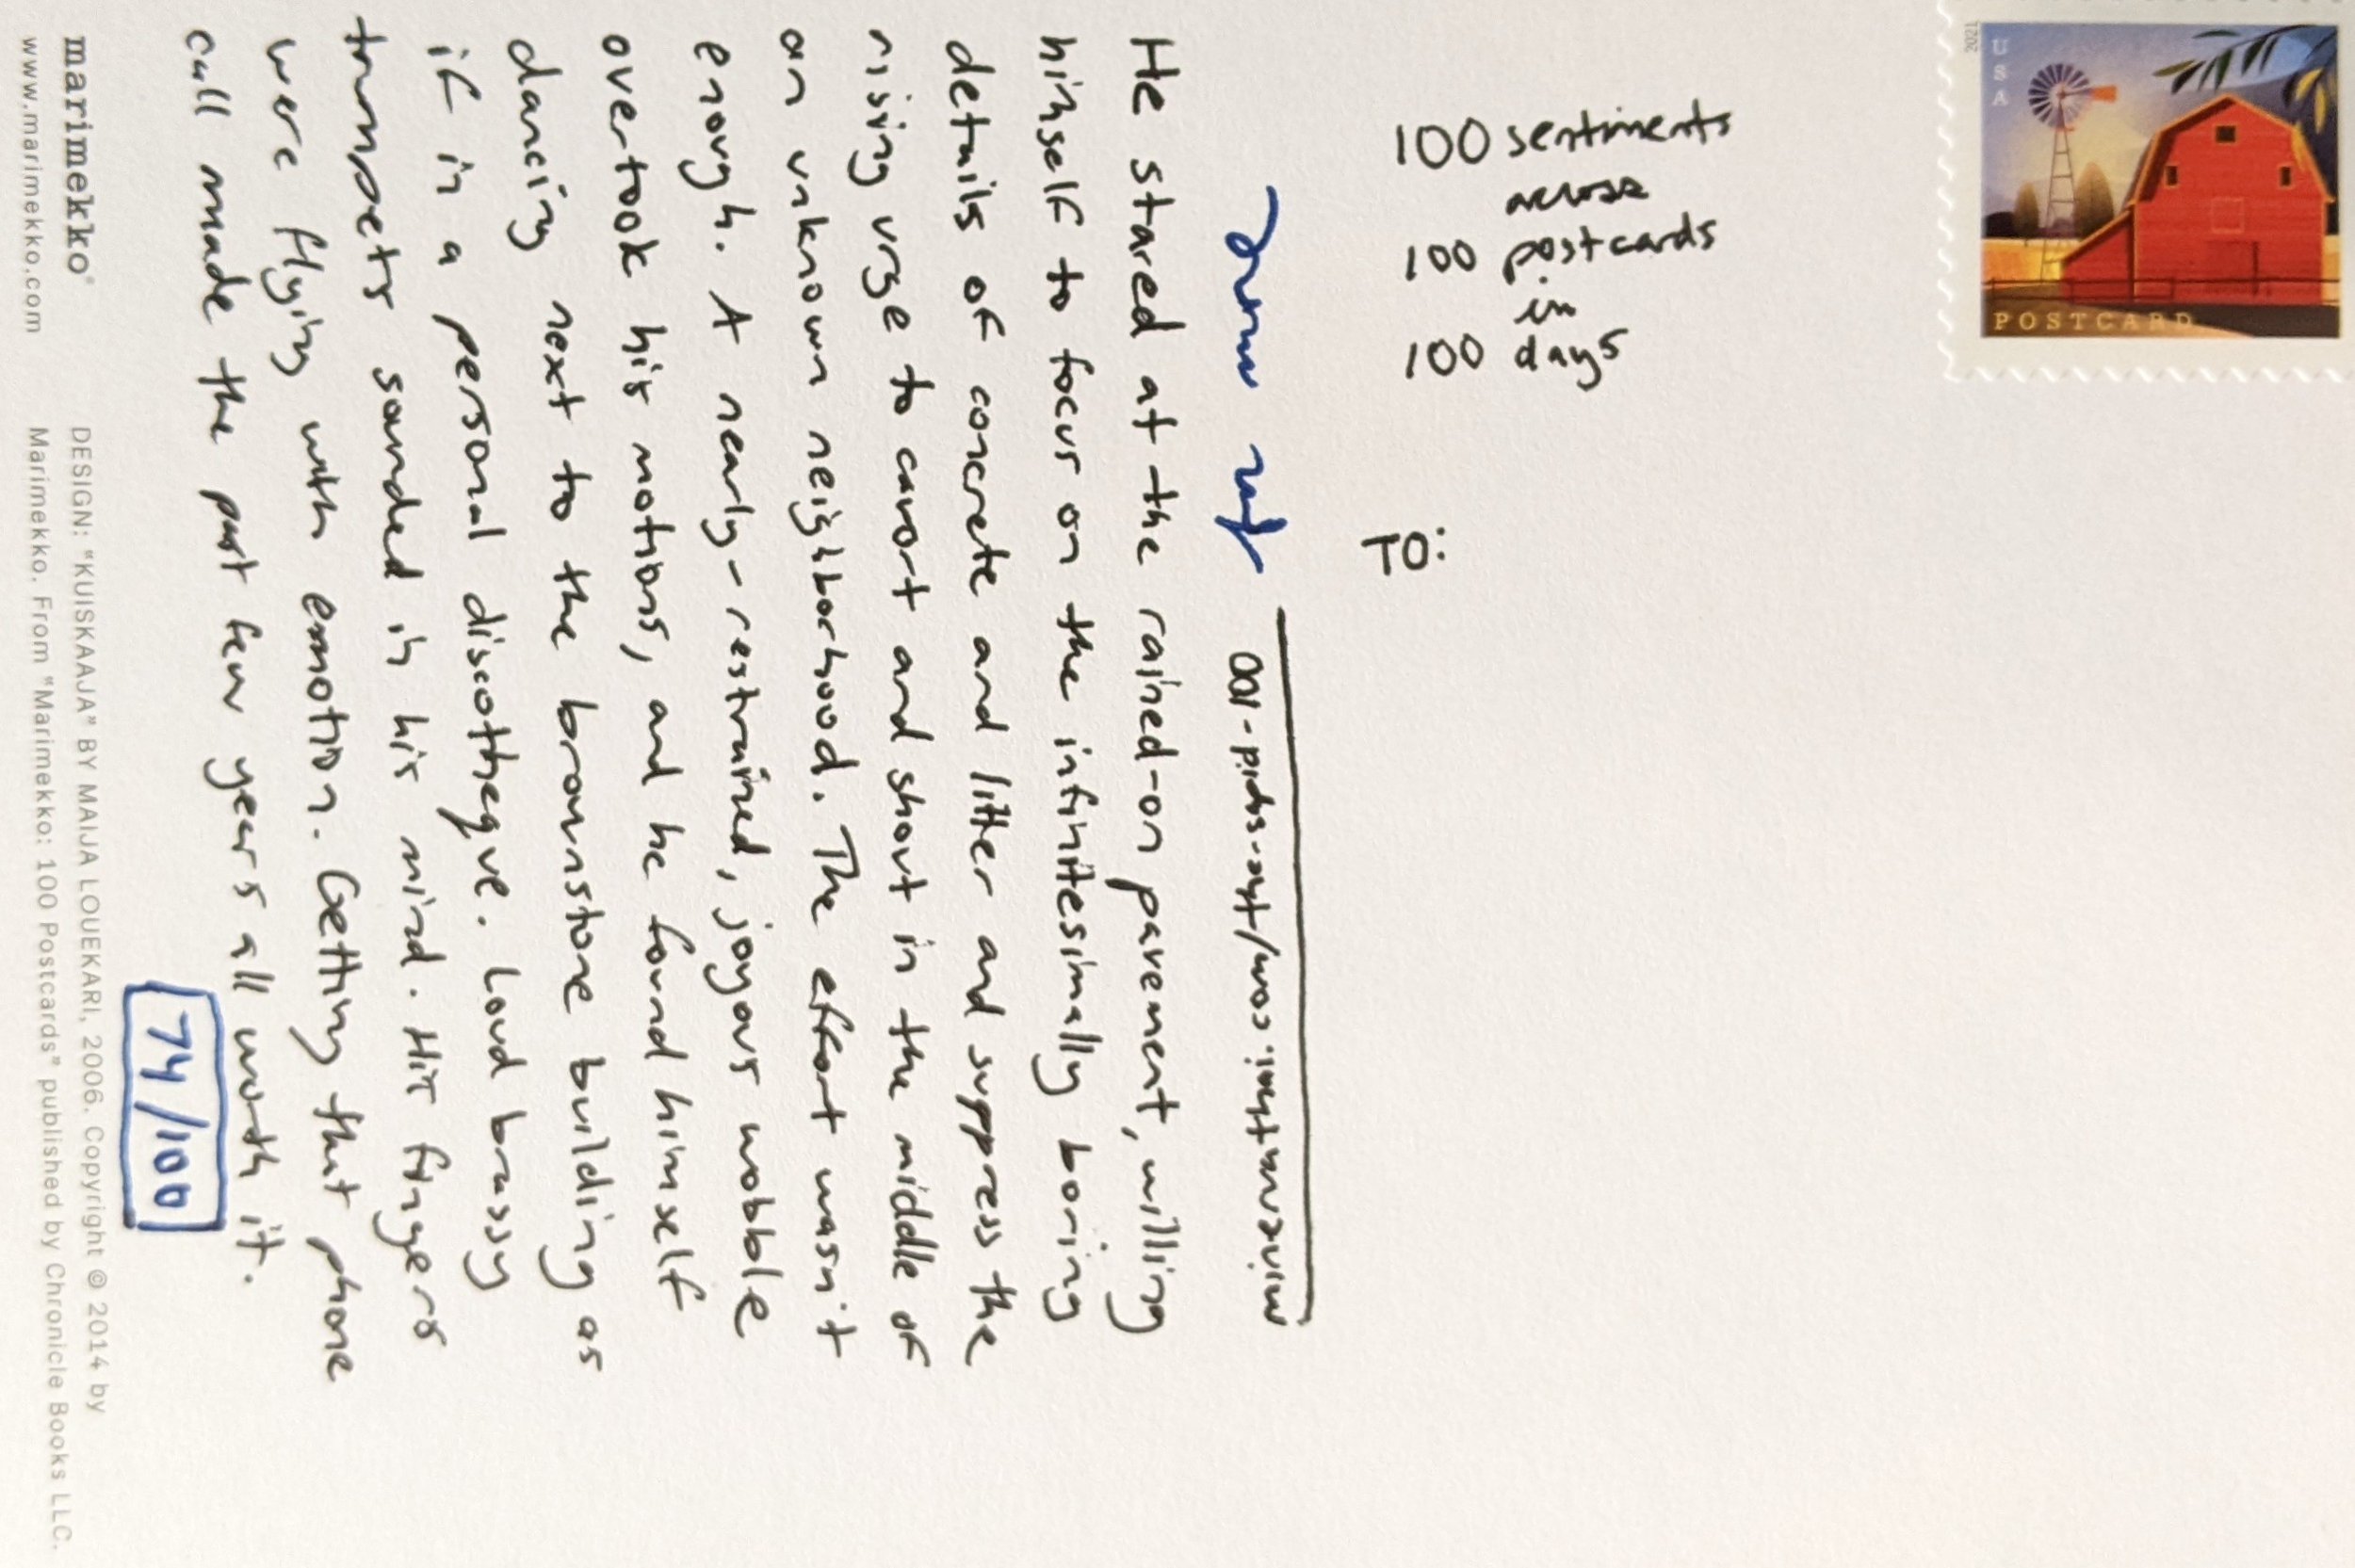 USA
POSTCARD
2021
100 sentiments
across
100 postcards
in
100 days
TO:
minervathai.com/the-spid-100
He stared at the rained-on pavement, willing
himself to focus on the infinitesimally boring
details of concrete and litter and suppress the
rising urge to cavort and shout in the middle of
an unknown neighborhood. The effort wasn't
enough. A nearly-restrained, joyous wobble
overtook his motions, and he found himself
dancing next to the brownstone building as
if in a personal discotheque. Loud brassy
trumpets sounded in his mind. His fingers
were flying with emotion. Getting that phone
call made the past few years all worth it.
74/100
marimekko®
www.marimekko.com
DESIGN: "KUISKAAJA" BY MAIJA LOUEKARI, 2006. Copyright © 2014 by
Marimekko. From "Marimekko: 100 Postcards" published by Chronicle Books LLC.